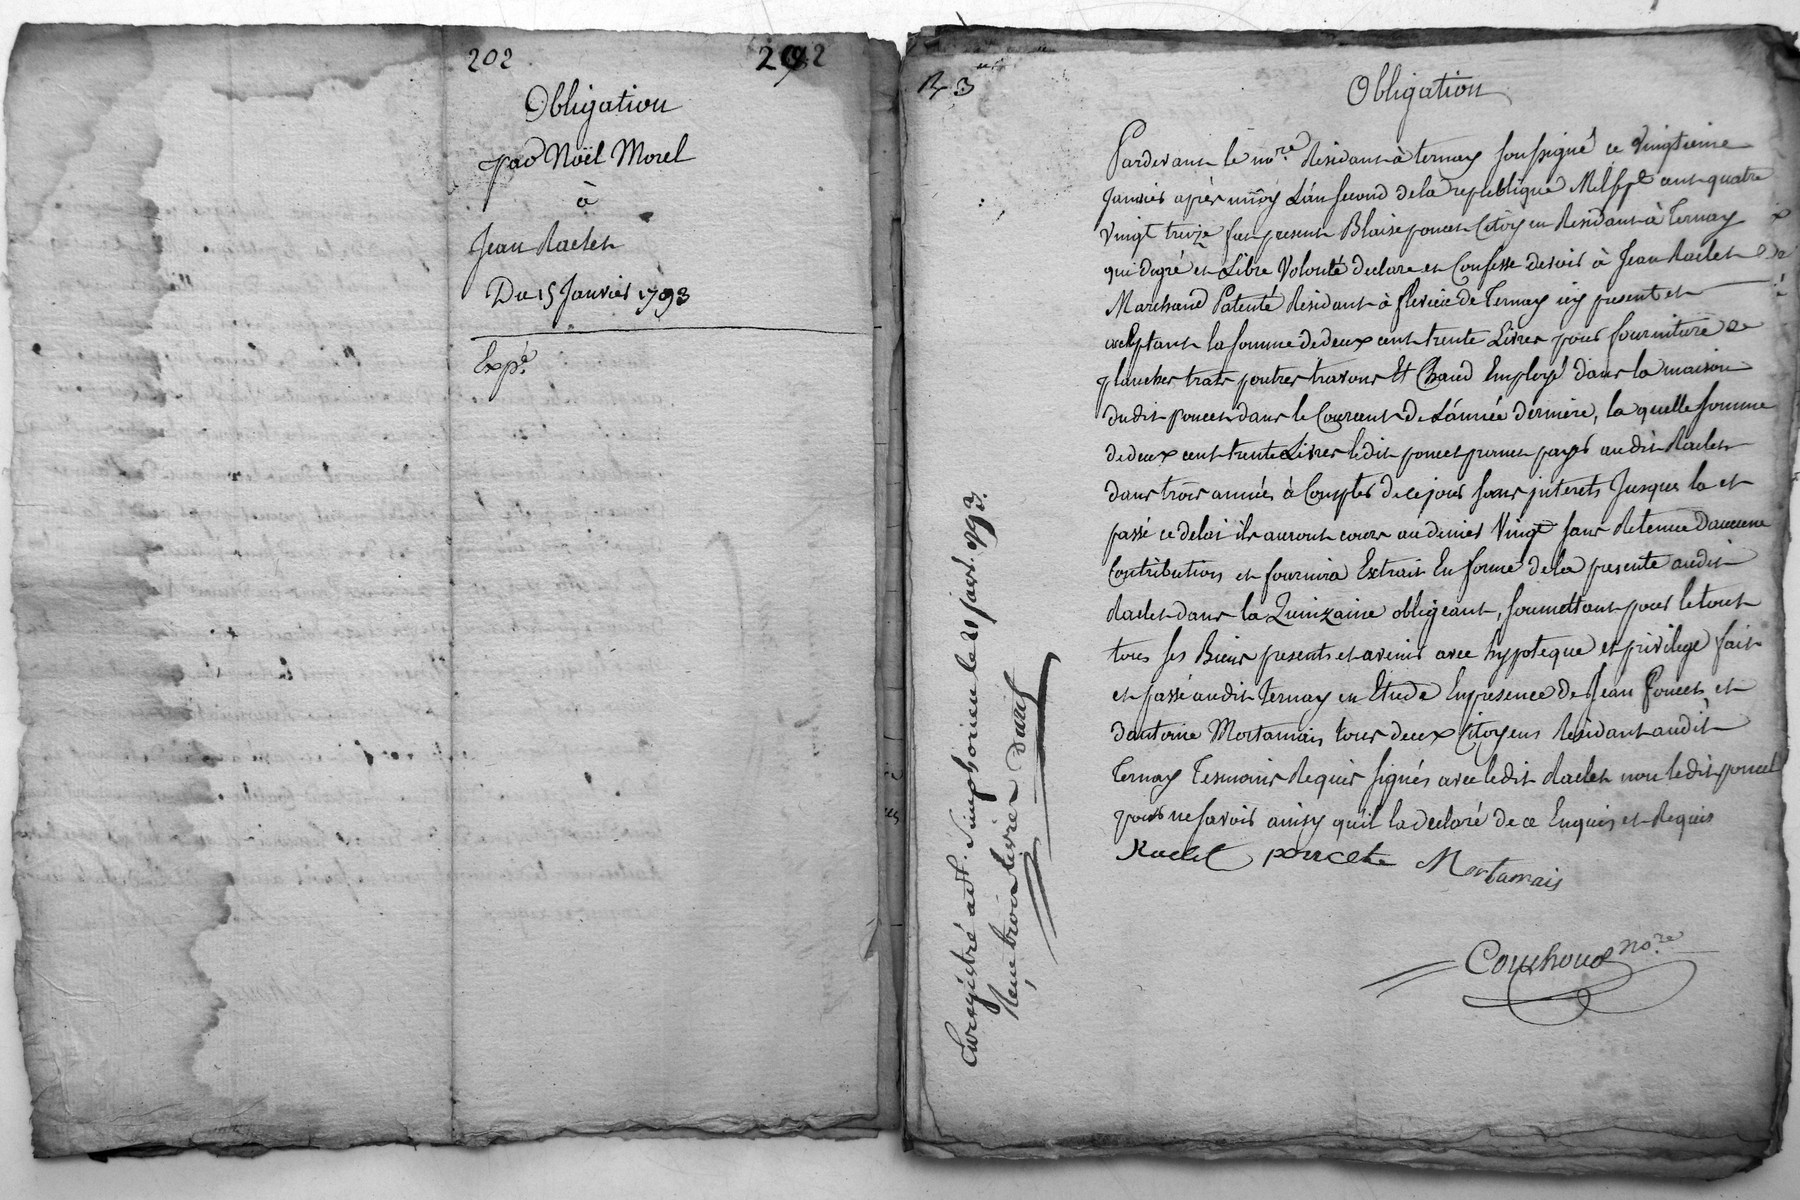 202
202
Obligation
par Noël Morel
à
Jean Raclet
Du 15 Janvier 1793
Exp.é
R 3
Obligation
Pardevant le no.re Residant à ternay soussigné ce vingtieme
Janvier après midy L'an second de la republique Mil sept cent quatre
vingt treize fut present Blaise poncet Citoyen Residant à Ternay
qui de gré et Libre Volonté declare et Confesse devoir à Jean Raclet
Marchand Patenté Residant à flevieu de Ternay icy present et
acceptant la somme de deux cent trente Livres pour fourniture de
planches trats poutres travons Et Chaud Employé dans la maison
dudit poncet dans le Courant de L'année derniere, la quelle somme
de deux cent trente Livres ledit poncet promet payer audit Raclet
dans trois années à Compter de ce jour sans interets Jusques la et
passé ce delai ils auront cours au denier Vingt sans Retenue d'aucune
Contribution et fournira Extrait En forme de la presente audit
Raclet dans la Quinzaine obligeant, soumettant pour le tout
tous ses Biens presents et avenir avec hypoteque et privilege fait
et passé audit Ternay en Etude En presence de Jean Poncet et
d'antoine Mortamais tous deux Citoyens Residant audit
Ternay Tesmoins Requis signés avec ledit Raclet non ledit poncet
pour ne savoir ainsy qu'il la declaré de ce Enquis et Requis
Raclet poncete Mortamais
Couchoud no.re
Enregistré a St. Simphorien le 20 janv. 1793.
Reçu trois livres